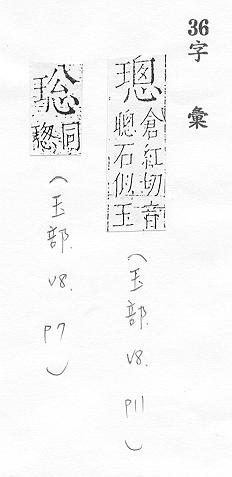 36字彙
璁
倉紅切音
聰石似玉
(玉部. V8. P11)
璁
同
璁
(玉部. V8. P7)